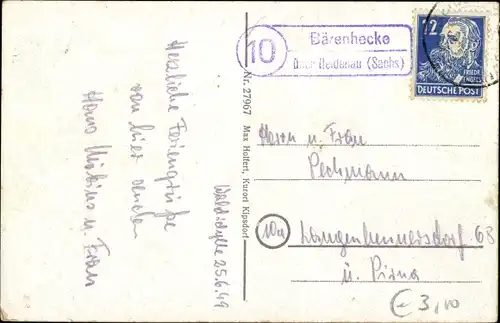 Herzliche Feriengrüße
von hier senden
Hans u. Frau
Waldidylle 25.6.49
Nr. 27967 Max Helfert, Kurort Kipsdorf
10
Bärenhecke
über Heidenau (Sachs)
12
FRIEDR. ENGELS
DEUTSCHE POST
Herrn u. Frau
Pechmann
10a
Langenhennersdorf 63
ü. Pirna
€ 3,00